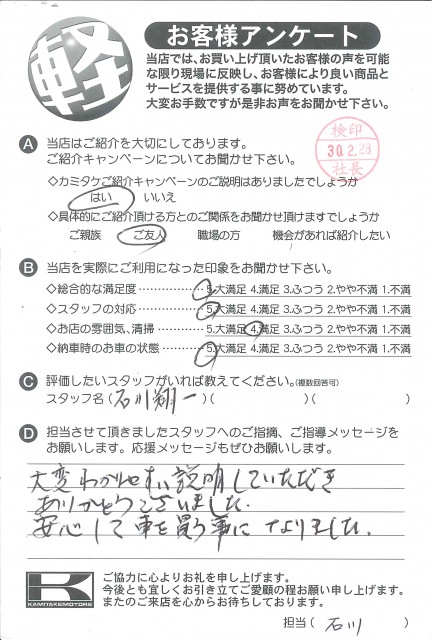 軽
お客様アンケート
当店では、お買い上げ頂いたお客様の声を可能
な限り現場に反映し、お客様により良い商品と
サービスを提供する事に努めています。
大変お手数ですが是非お声をお聞かせ下さい。
検印
30.2.28
社長
A 当店はご紹介を大切にしてあります。
ご紹介キャンペーンについてお聞かせ下さい。
◇カミタケご紹介キャンペーンのご説明はありましたでしょうか
はい いいえ
◇具体的にご紹介頂ける方とのご関係をお聞かせ頂けますでしょうか
ご親族 ご友人 職場の方 機会があれば紹介したい
B 当店を実際にご利用になった印象をお聞かせ下さい。
◇総合的な満足度 5.大満足 4.満足 3.ふつう 2.やや不満 1.不満
◇スタッフの対応 5.大満足 4.満足 3.ふつう 2.やや不満 1.不満
◇お店の雰囲気、清掃 5.大満足 4.満足 3.ふつう 2.やや不満 1.不満
◇納車時のお車の状態 5.大満足 4.満足 3.ふつう 2.やや不満 1.不満
C 評価したいスタッフがいれば教えてください。(複数回答可)
スタッフ名(石川翔一)( )( )
D 担当させて頂きましたスタッフへのご指摘、ご指導メッセージを
お願いします。応援メッセージもぜひお願いします。
大変わかりやすい説明していただき
ありがとうございました。
安心して車を買う事になりました。
K
KAMITAKEMOTORS
ご協力に心よりお礼を申し上げます。
今後とも宜しくお引き立てご愛顧の程お願い申し上げます。
またのご来店を心からお待ちしております。
担当( 石川 )